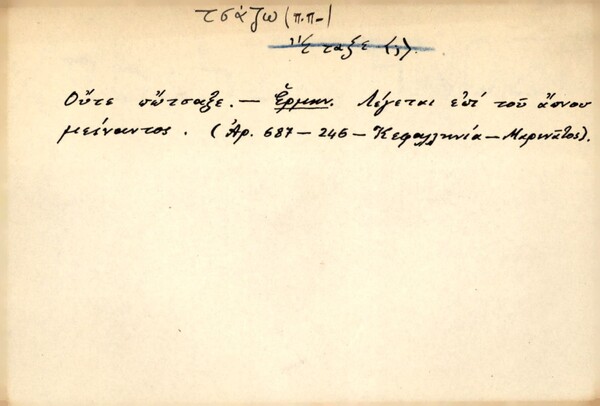 τσάζω (π.π-)
τάξε (;).
Οὔτε πὤτσαξε. — Ἑρμην. Λέγεται ἐπί τοῦ ἄπνου
μείναντος. (Ἀρ. 687 – 246 – Κεφαλληνία – Μαρινᾶτος).